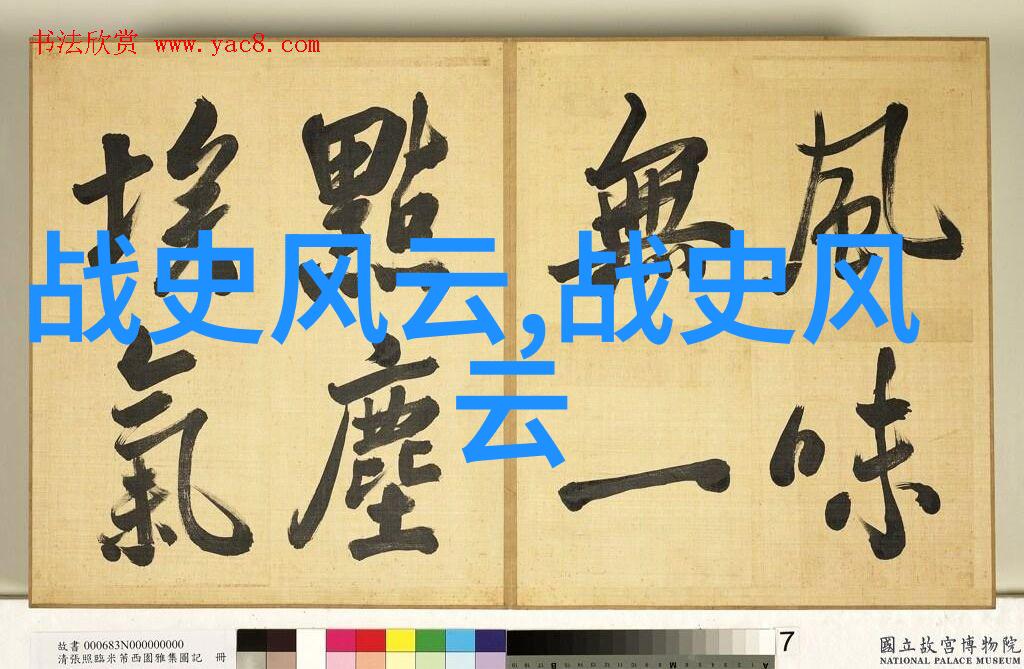 书法欣赏 www.yac8.com
風味
無一
點塵
埃氣
战史风云,战史风
云
故書 000683N000000000
清張照臨米芾西園雅集圖記 冊
7
國立故宮博物院
NATIONAL PALACE MUSEUM